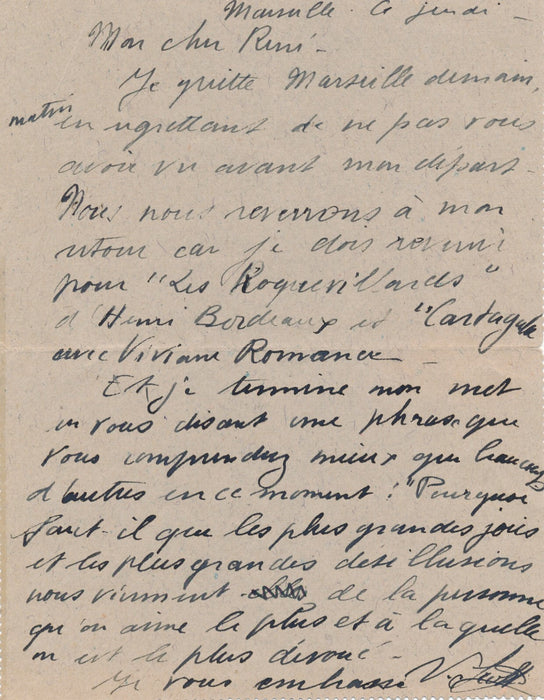 Marseille. Ce jeudi -
Mon cher René -
Je quitte Marseille demain,
matin
en regrettant de ne pas vous
avoir vu avant mon départ -
Nous nous reverrons à mon
retour car je dois revenir
pour "Les Roquevillards"
d'Henri Bordeaux et "Cartagala
avec Viviane Romance -
Et je termine mon mot
en vous disant une phrase que
vous comprendrez mieux que beaucoup
d'autres en ce moment : "Pourquoi
faut-il que les plus grandes joies
et les plus grandes desillusions
nous viennent de la personne
qu'on aime le plus et à laquelle
on est le plus dévoué -
Je vous embrasse V.